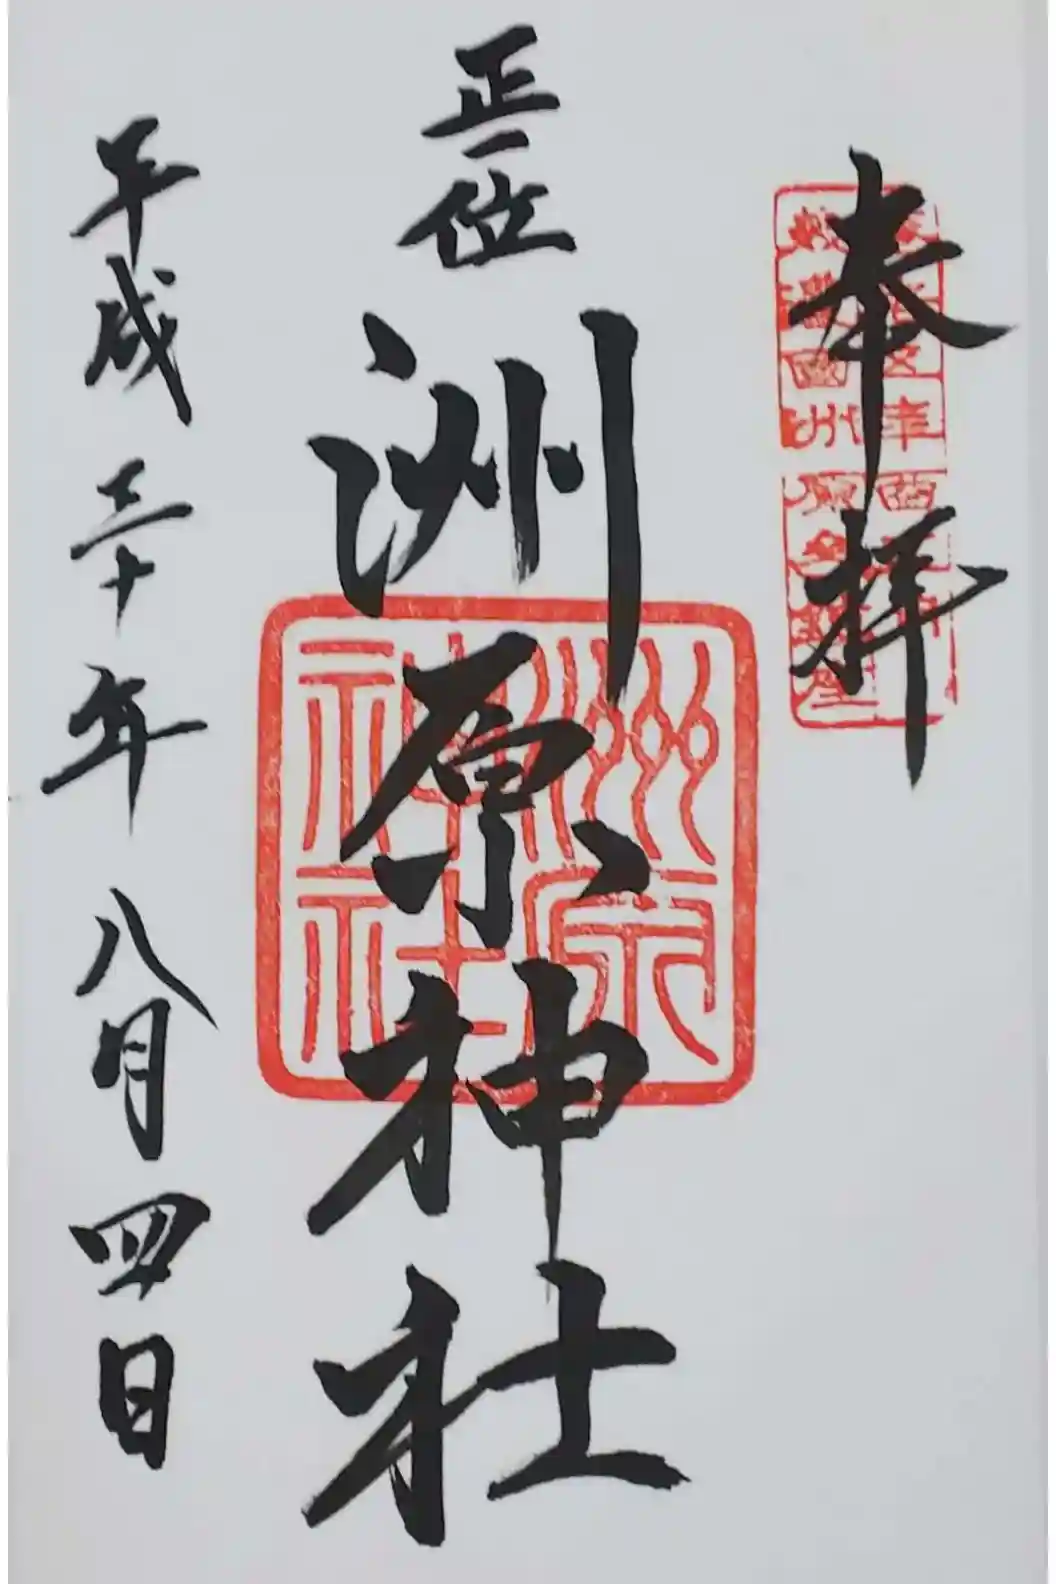 奉拝
正一位
洲原神社
平成三十年八月四日
洲原神社